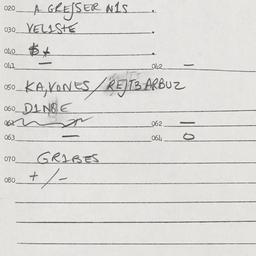 020 A GREJSER N1S .
030 VELISTE .
040 $ * .
041 — 042 —
050 KA,VONES / REJTBARBUZ
060 DINBE
061 062 —
063 — 064 O
070 GRIBES
080 + / -